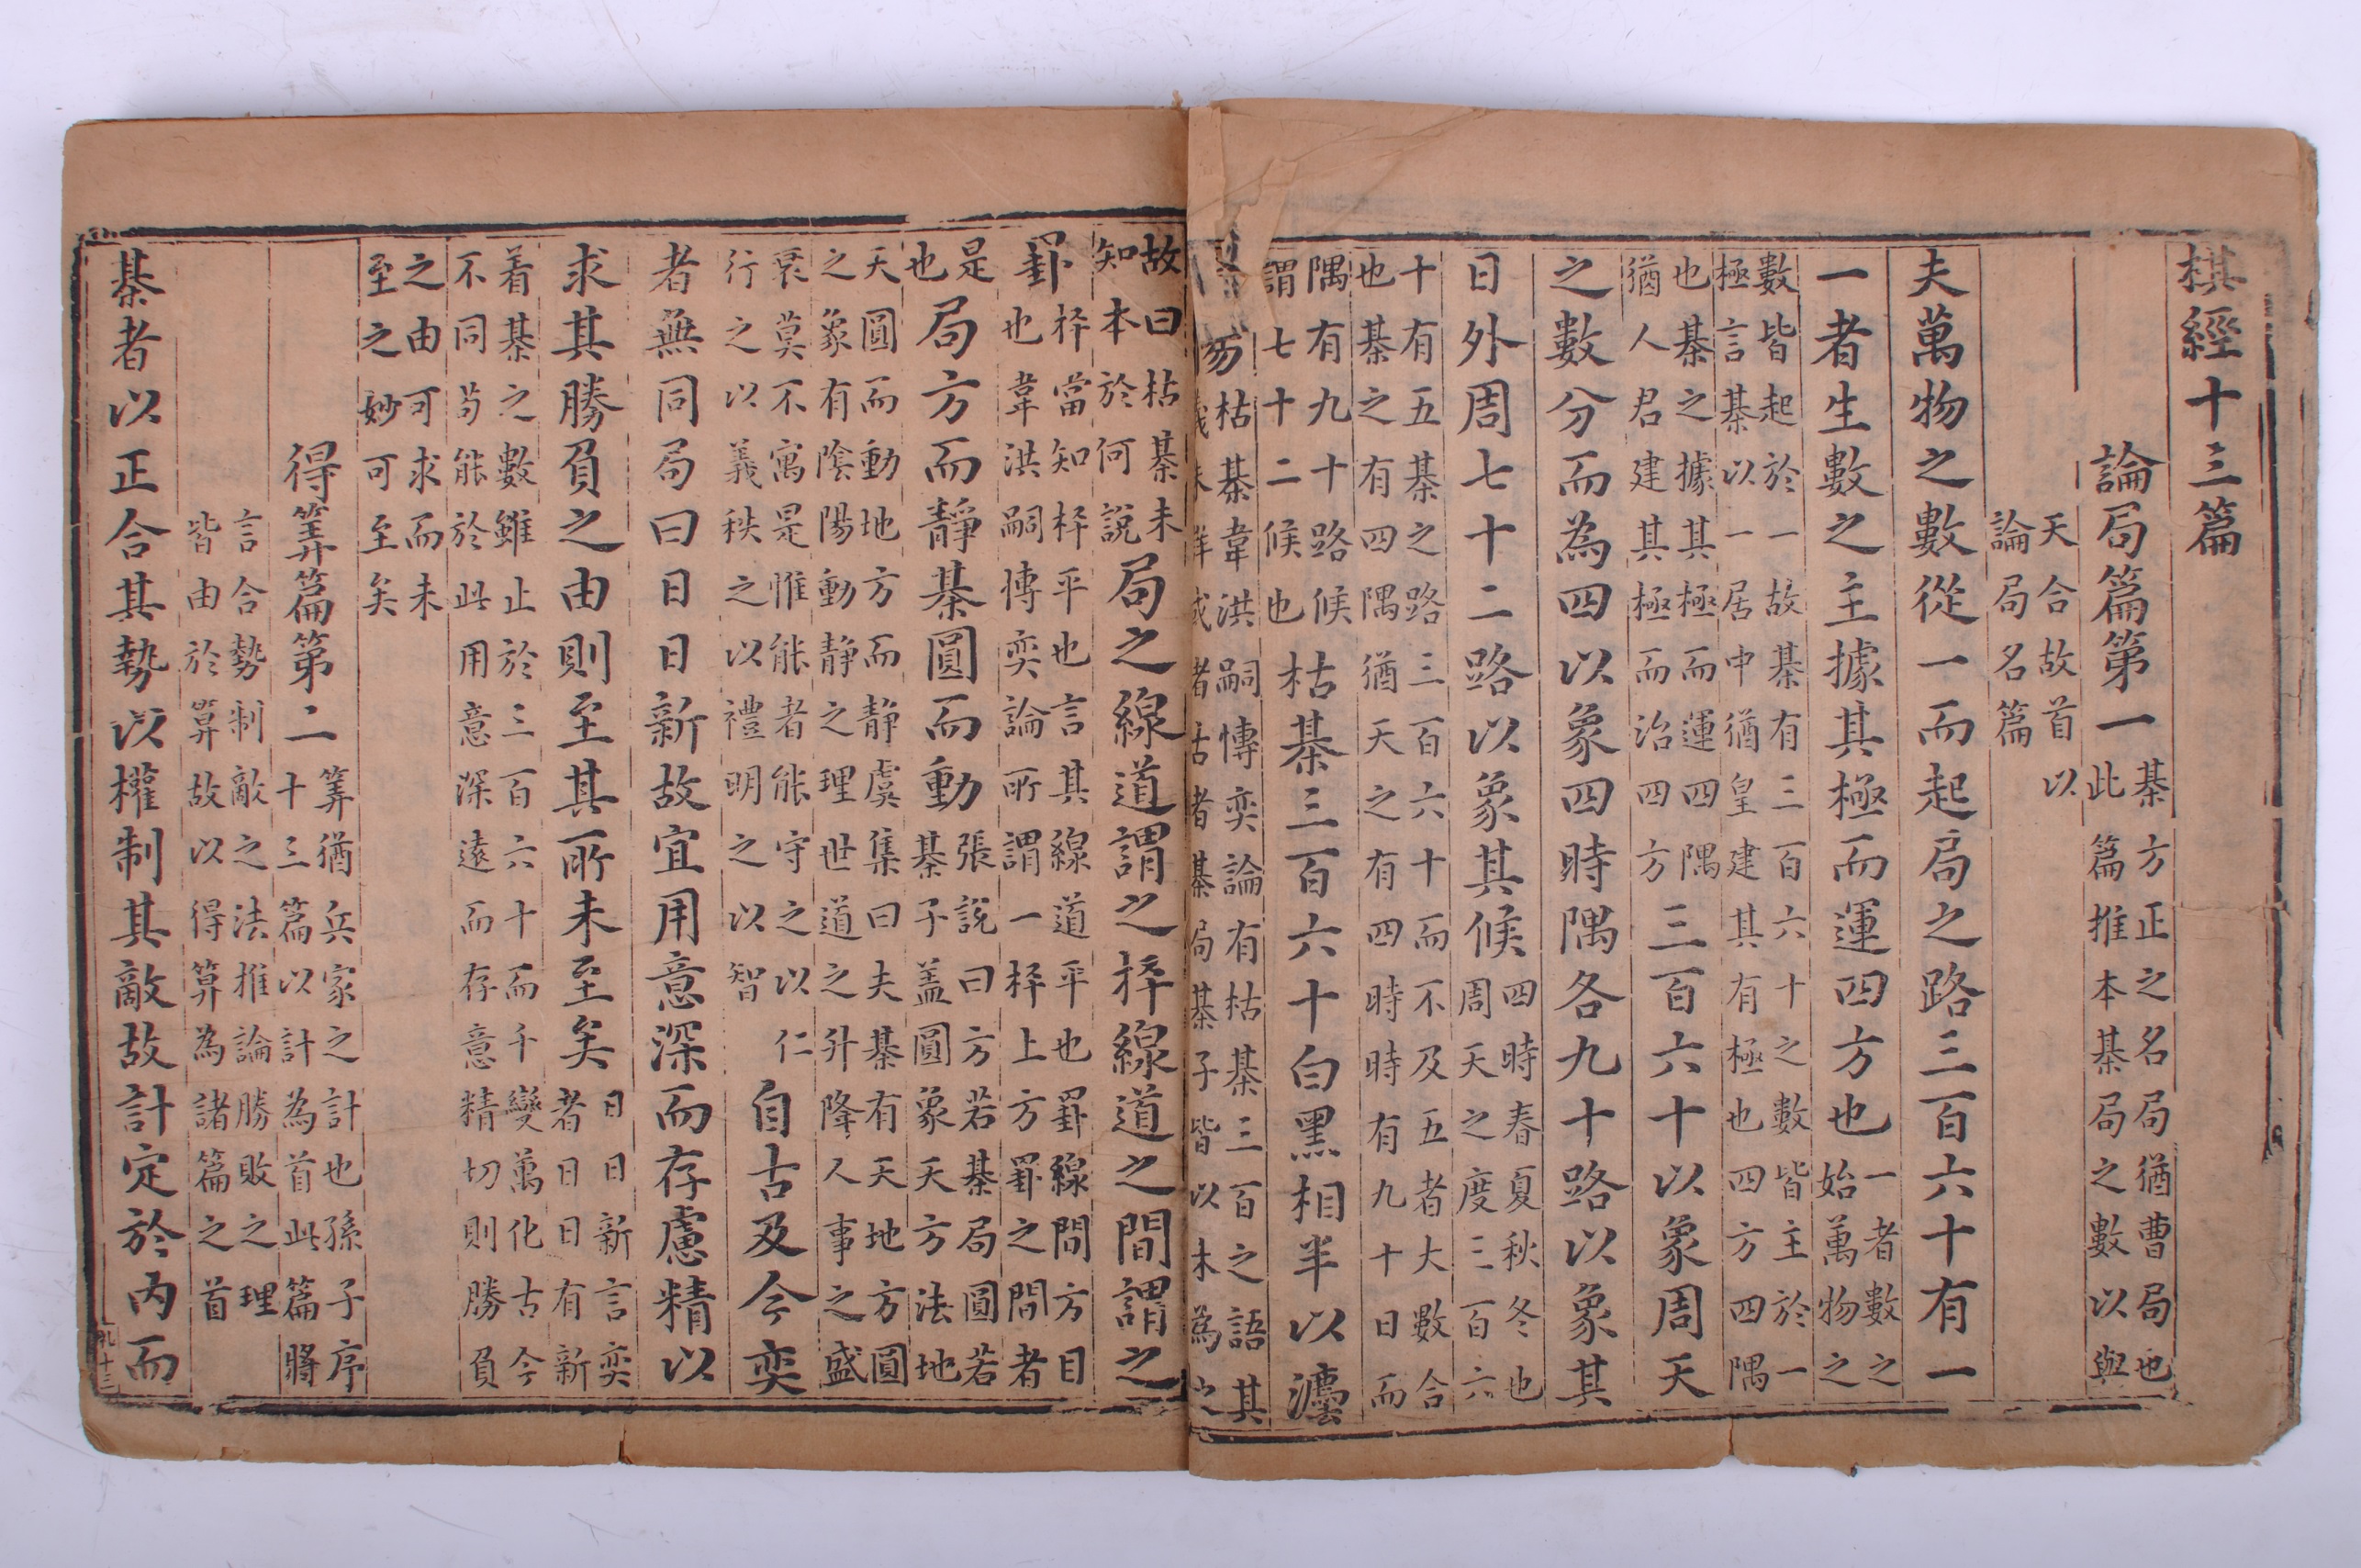 棋經十三篇
論局篇第一
棊方正之名局猶曹局也
此篇推本棊局之數以與
天合故首以
論局名篇
夫萬物之數從一而起局之路三百六十有一
一者生數之主據其極而運四方也
一者數之
始萬物之
數皆起於一故棊有三百六十之數皆主於一
極言棊以一居中猶皇建其有極也四方四隅
也棊之據其極而運四隅
猶人君建其極而治四方
三百六十以象周天
之數分而為四以象四時隅各九十路以象其
日外周七十二路以象其候
四時春夏秋冬也
周天之度三百六
十有五棊之路三百六十而不及五者大數合
也棊之有四隅猶天之有四時時有九十日而
隅有九十路候
謂七十二候也
枯棊三百六十白黑相半以灋
枯棊韋洪嗣愽奕論有枯棊三百之語其
者棊局棊子皆以木為之
故曰枯棊未
知本於何說
局之線道謂之枰線道之間謂之
罫
枰當知枰平也言其線道平也罫線間方目
也韋洪嗣博奕論所謂一枰上方罫之間者
是
也
局方而靜棊圓而動
張說曰方若棊局圓若
棊子盖圓象天方法地
天圓而動地方而静虞集曰夫棊有天地方圓
之象有陰陽動静之理世道之升降人事之盛
衰莫不寓是惟能者能守之以仁
行之以義秩之以禮明之以智
自古及今奕
者無同局曰日日新故宜用意深而存慮精以
求其勝負之由則至其所未至矣
日日新言奕
者日日有新
着棊之數雖止於三百六十而千變萬化古今
不同茍能於此用意深遠而存意精切則勝負
之由可求而未
至之妙可至矣
得筭篇第二
筭猶兵家之計也孫子序
十三篇以計為首此篇將
言合勢制敵之法推論勝敗之理
皆由於算故以得算為諸篇之首
棊者以正合其勢以權制其敵故計定於内而